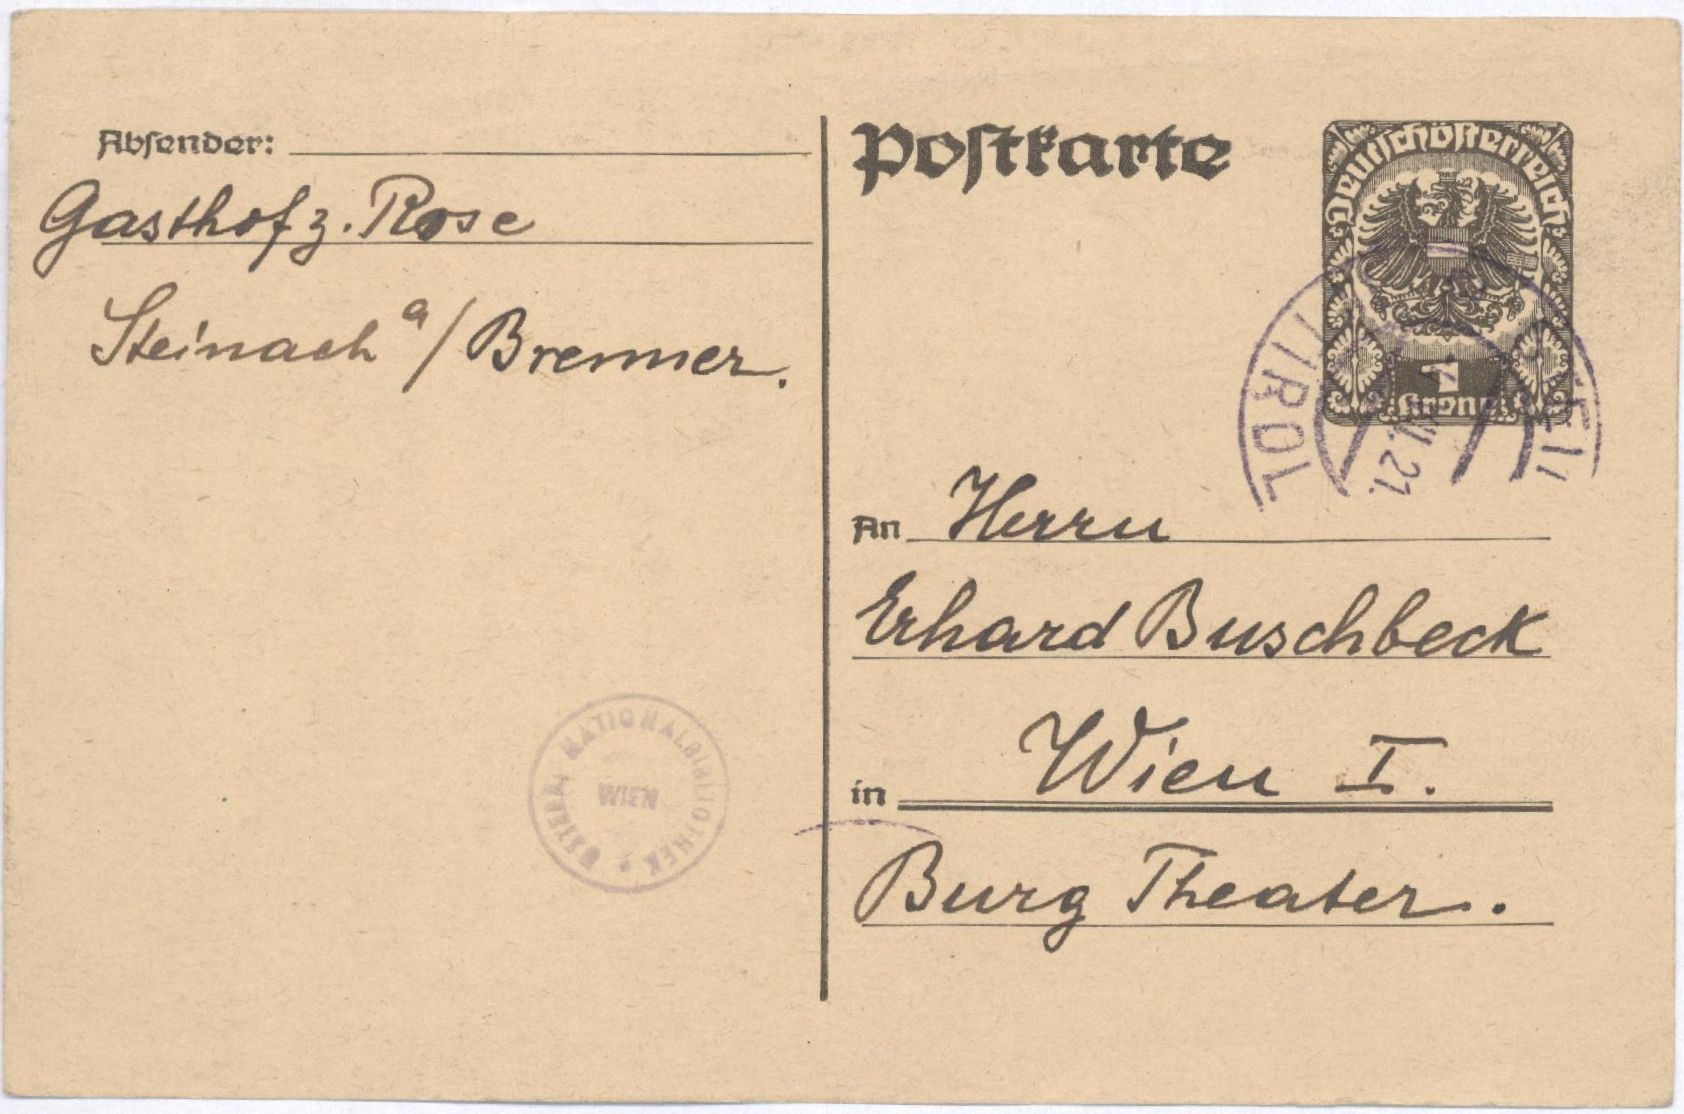 Absender:
Gasthof z. Rose
Steinach a/Brenner.
Postkarte
Deutschösterreich
1
Krone
TIROL
21.
An Herrn
Erhard Buschbeck
in Wien I.
Burg Theater.
NATIONALBIBLIOTHEK
WIEN